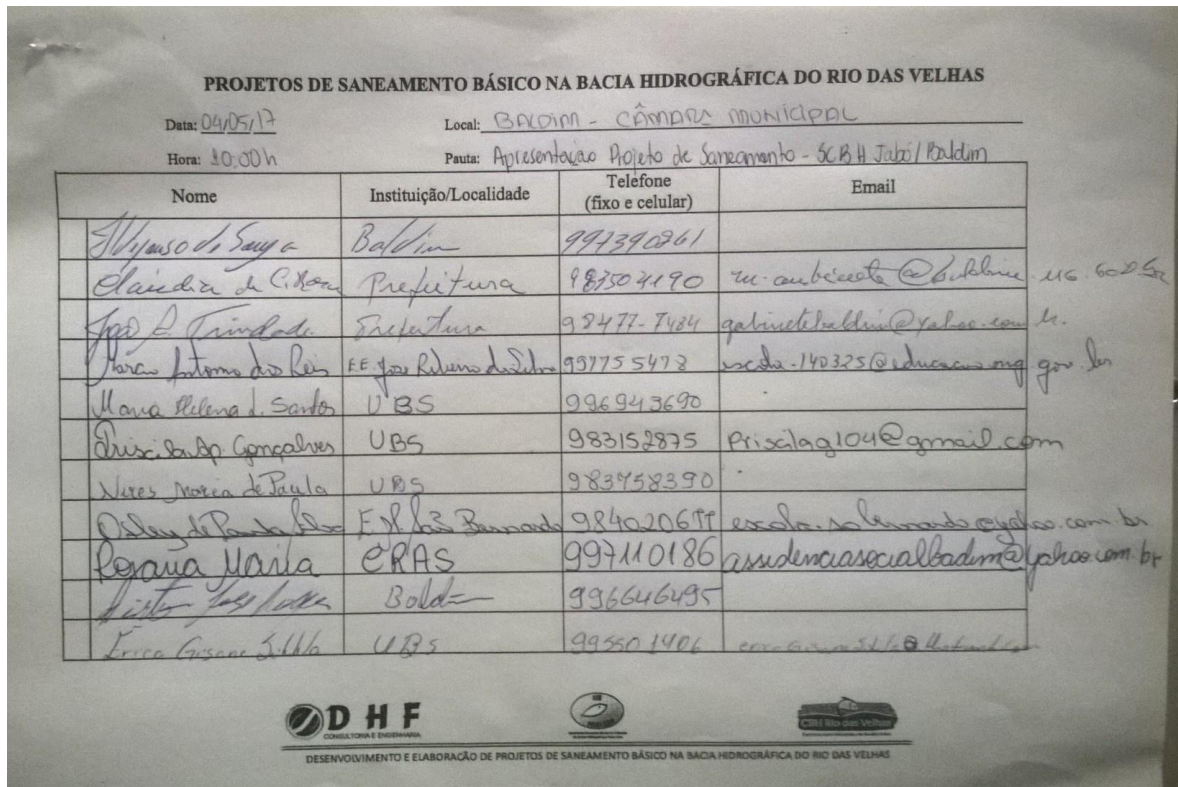 PROJETOS DE SANEAMENTO BÁSICO NA BACIA HIDROGRÁFICA DO RIO DAS VELHAS
Data: 04/05/17 Local: BALDIM - CÂMARA MUNICIPAL
Hora: 10:00h Pauta: Apresentação Projeto de Saneamento - SCBH Jabó/Baldim
Nome Instituição/Localidade Telefone (fixo e celular) Email
de Souza Baldim 991390261
Claudia de C. Prefeitura 983504190
João Trindade Prefeitura 98477-7484 gabinetebaldim@yahoo.com
Marco Antonio dos Reis E.E. José Ribeiro da Silva 997755478 escola.140325@educacao.mg.gov.br
Maria Helena d. Santos UBS 996943690
Priscila Ap. Gonçalves UBS 983152875 Priscilagg104@gmail.com
Maria de Paula UBS 983758390
de Paula E.M. São Bernardo
Rosana Maria CRAS 997110186 assidenciasocialbadim@yahoo.com.br
Baldim 996646495
Erica Gisane UBS 995501406
DHF
CONSULTORIA E ENGENHARIA
CBH Rio das Velhas
DESENVOLVIMENTO E ELABORAÇÃO DE PROJETOS DE SANEAMENTO BÁSICO NA BACIA HIDROGRÁFICA DO RIO DAS VELHAS